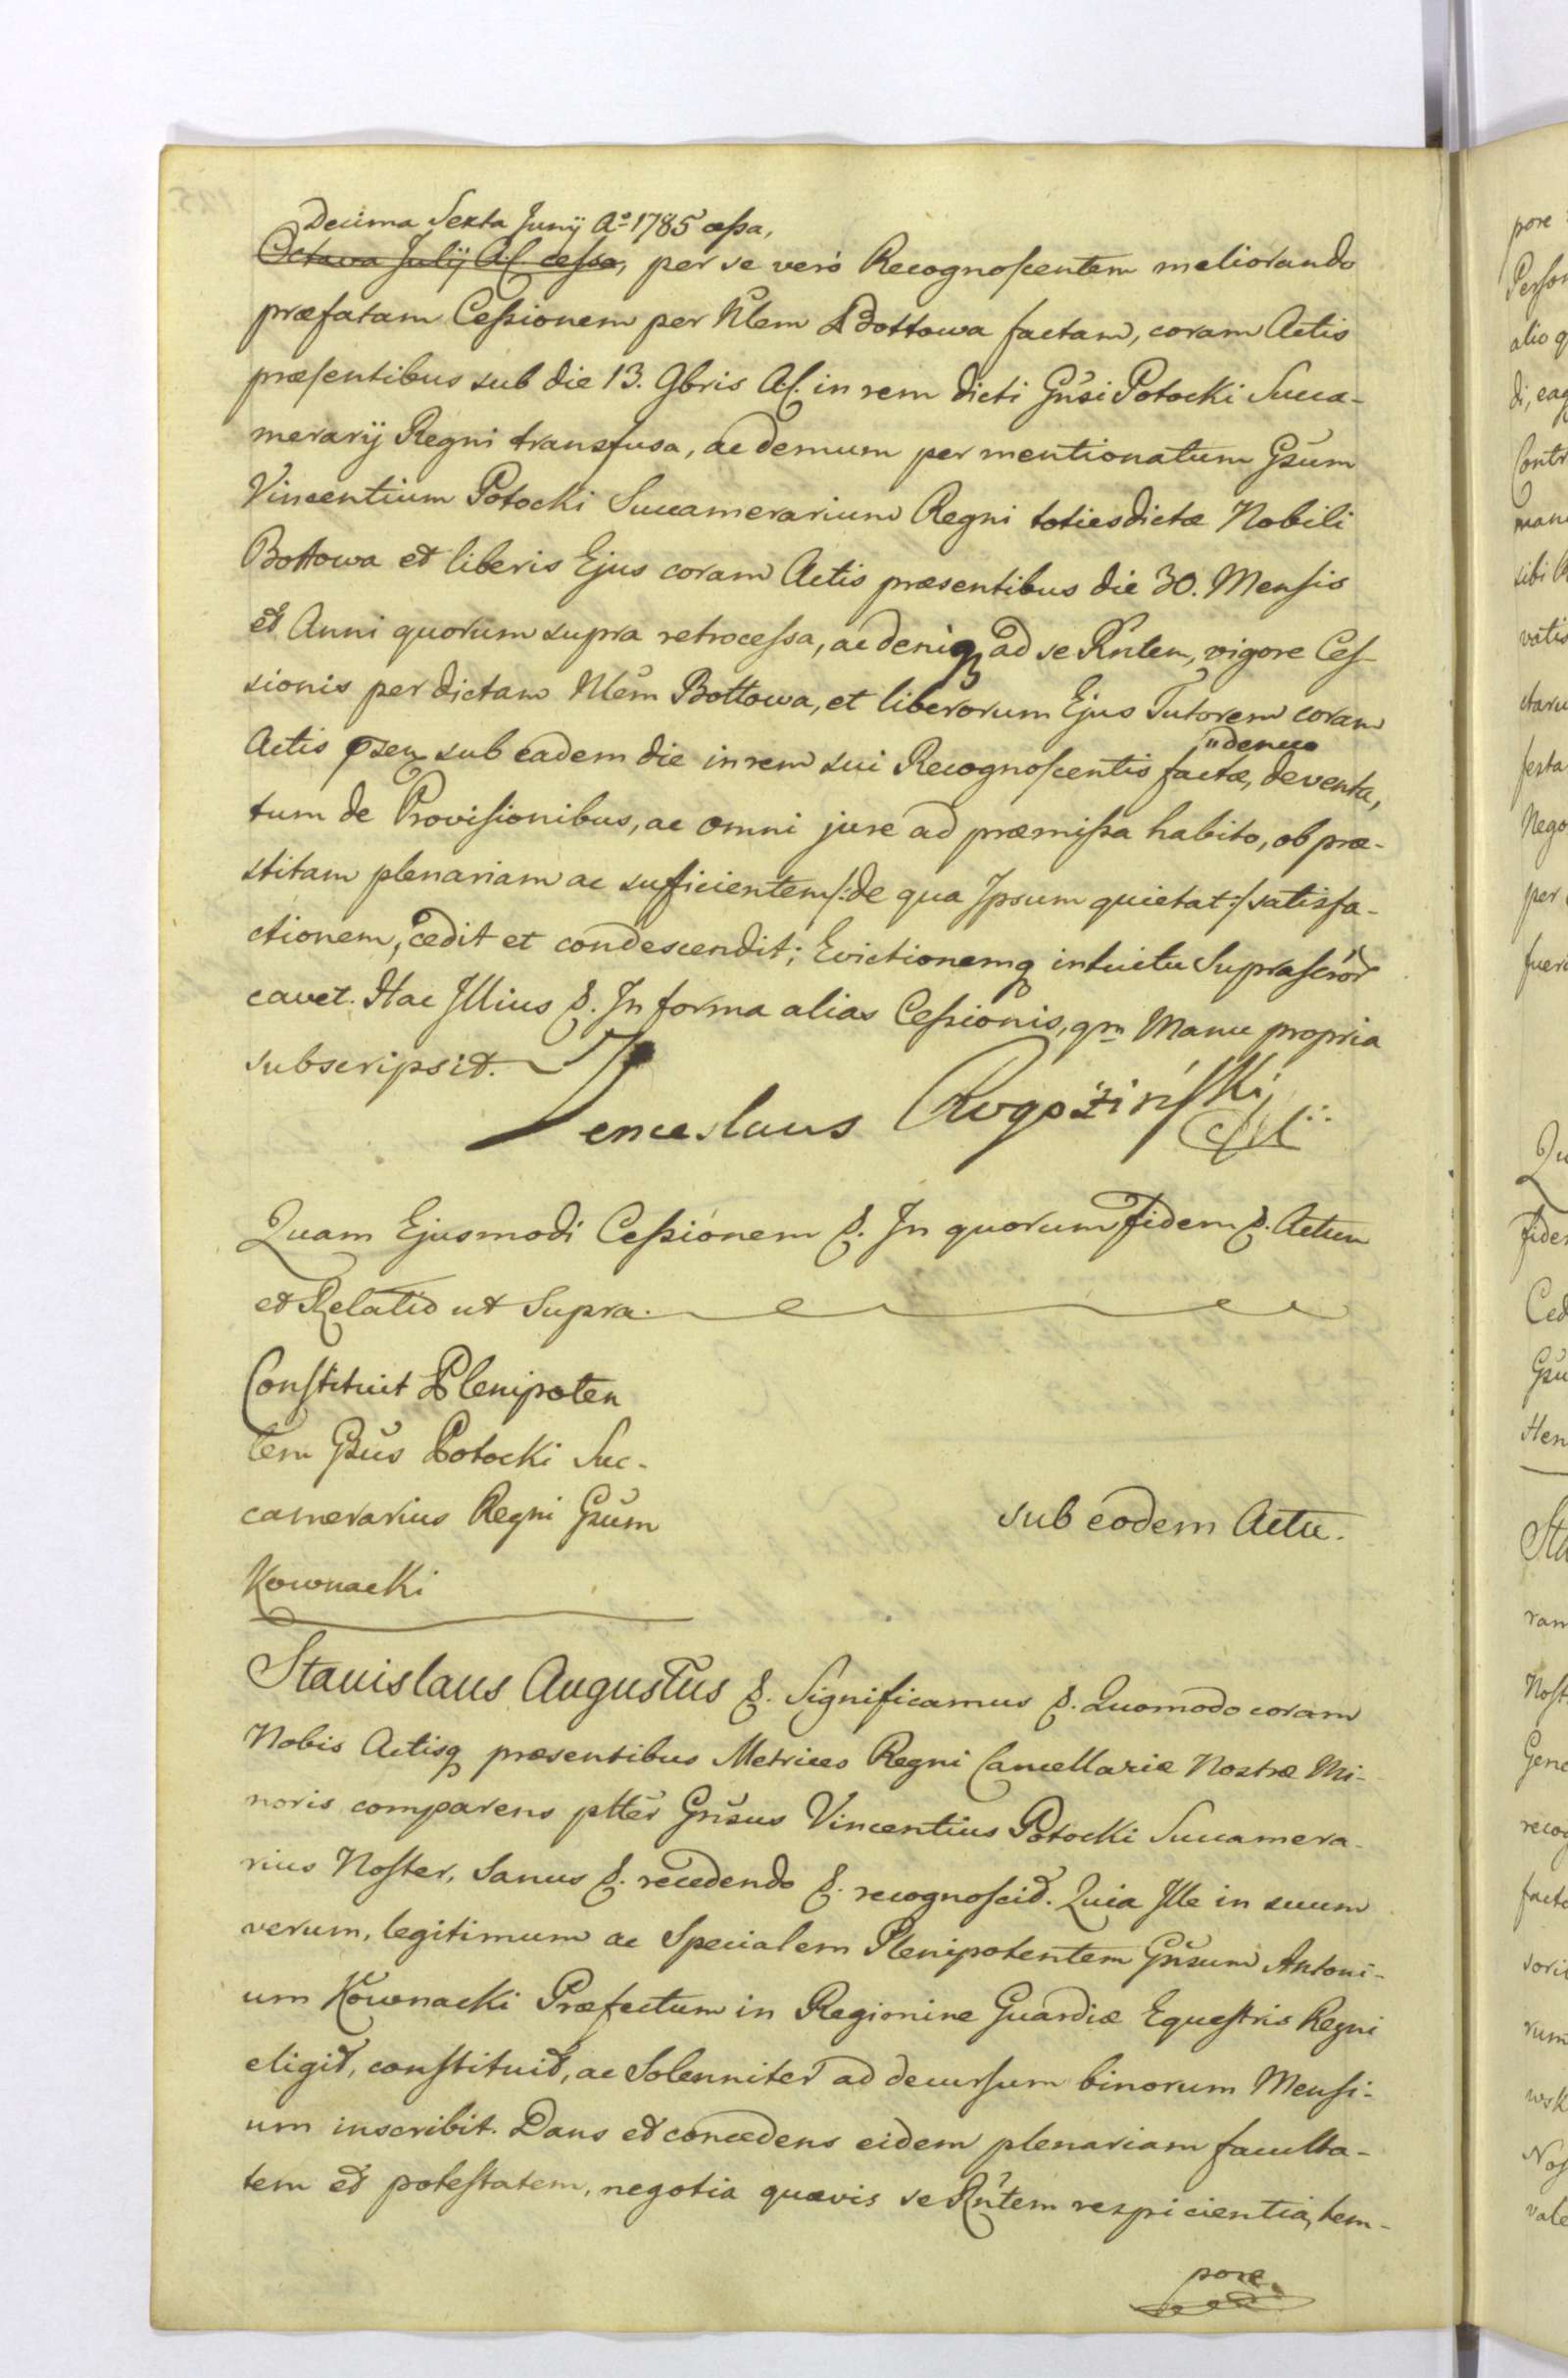 Decima Sexta Junÿ Aº 1785 cessa,
Octava Julÿ A.C. cessa, per se verò Recognoscentem meliorando
præfatam Cessionem per Nlem Bottowa factam, coram Actis
præsentibus sub die 13. 9bris A.C. in rem dicti Gnsi Potocki Succa-
merarÿ Regni transfusa, ac demum per mentionatum Gsum
Vincentium Potocki Succamerarium Regni totiesdictæ Nobili
Bottowa et liberis Ejus coram Actis præsentibus die 30. Mensis
et Anni quorum supra retrocessa, ac deniq, ad se Rntem, vigore Ces-
sionis per dictam Nlem Bottowa, et liberorum Ejus Tutorem coram
Actis psen, sub eadem die in rem sui Recognoscentis factæ, denuo deventa,
tum de Provisionibus, ac omni jure ad præmissa habito, ob præ-
stitam plenariam ac suficientem /: de qua Ipsum quietat :/ satisfa-
ctionem, cedit et condescendit; Evictionemq intuitu Suprascror
cavet. Hac Illius &. In forma alias Cessionis, qm Manu propria
subscripsit.
Venceslaus Rogoziński
Quam Ejusmodi Cessionem &. In quorum fidem &. Actum
et Relatio ut Supra.
Constituit Plenipoten
tem Gsus Potocki Suc-
camerarius Regni Gsum
Kownacki
sub eodem Actu.
Stanislaus Augustus &. Significamus &. Quomodo coram
Nobis Actisq præsentibus Metrices Regni Cancellariæ Nostræ Mi-
noris comparens pltter Gnsus Vincentius Potocki Succamera-
rius Noster, Sanus &. recedendo &. recognoscit. Quia Ille in suum
verum, legitimum ac Specialem Plenipotentem Gnsum Antoni-
um Kownacki Præfectum in Regionine Guardiæ Equestris Regni
eligit, constituit, ac Solenniter ad decursum binorum Mensi-
um inscribit. Dans et concedens eidem plenariam faculta-
tem et potestatem, negotia quævis se Rntem respicientia, tem-
pore